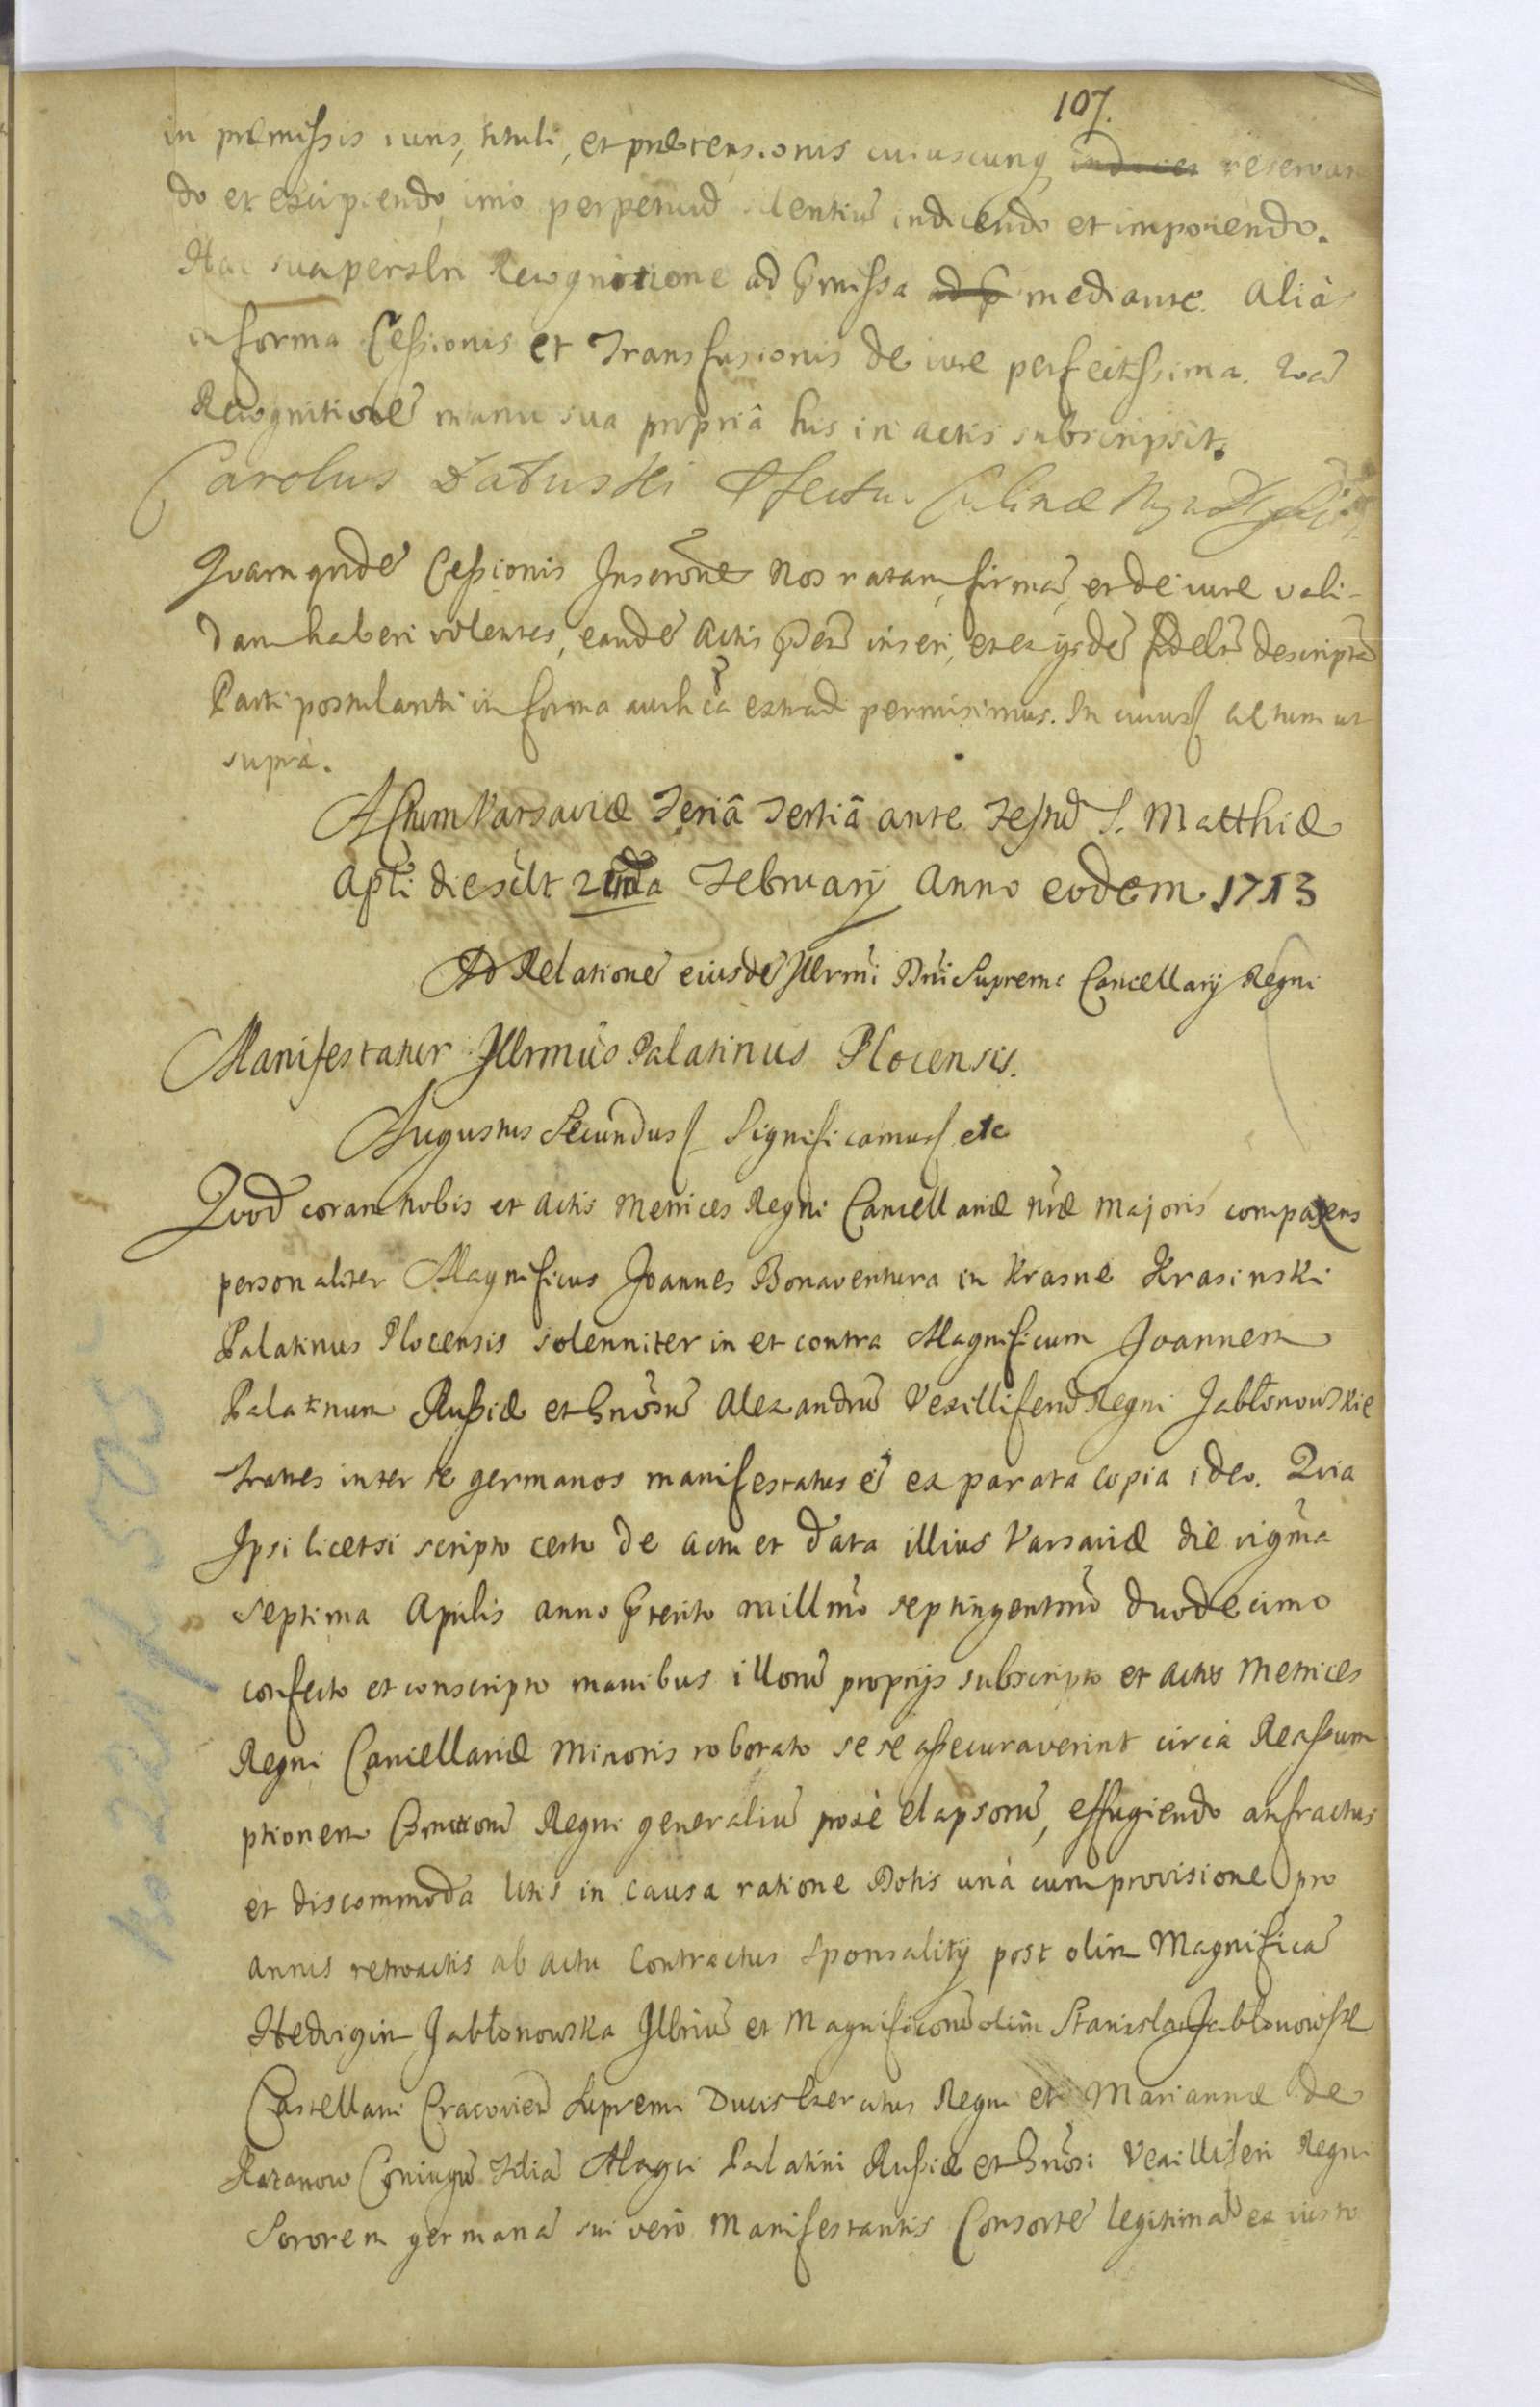 107.
in præmissis iuris, tituli, et prætensionis cuiuscunq reservan
do et excipiendo, imo perpetuũ silentiũ indicendo et imponendo.
Hac sua persln Recognitione ad præmissa mediante. Aliàs
in forma Cessionis et Transfusionis de iure perfectissima. Quã
Recognitionẽ manu sua propriâ his in actis subscripsit.
Carolus
Quamquidẽ Cessionis Inscrõnem Nos ratam, firmã, et de iure vali-
dam haberi volentes, eandẽ Actis inseri, et ex ijsdẽ fidelr descriptã
Parti postulanti in forma authcâ extradi permisimus. In cuius actum ut
supra.
Actum Varsaviæ Feriâ Tertiâ ante Festũ S. Matthiæ
Apli die scilt Februarij Anno eodem 1713
Ad Relationẽ eiusdẽ Illrmi Dni Supremi Cancellarij Regni
Manifestatur Illrmus Palatinus Plocensis.
Augustus Secundus Significamus etc
Quod coram nobis et Actis Metrices Regni Cancellariæ nræ Majoris comparens
personaliter Magnificus Joannes Bonaventura in Krasne Krasinski
Palatinus Plocensis solenniter in et contra Magnificum Joannem
Palatinum Russiæ et Gnõsũ Alexandrũ Vexilliferũ Regni Jabłonowskie
Fratres inter se germanos manifestatus ẽ ex parata copia ideo. Quia
Ipsi licet si scripto certo de actu et data illius Varsaviæ die vigma
septima Aprilis anno præterito millmo septingentmo duodecimo
confecto et conscripto manibus illorũ proprijs subscripto et actis Metrices
Regni Cancellariæ Minoris roborato se se assecuraverint circa Reassum
ptionem Comitiorũ Regni generaliũ elapsorũ, effugiendo anfractus
et discommoda litis in causa ratione Dotis unà cum provisione pro
annis retroactis ab actu Contractus Sponsalitij post olim Magnificã
Hedvigim Jabłonowska Illriũ et Magnificorũ olim Stanislai Jabłonowski
Castellani Cracovien Supremi Ducis Exercitus Regni et Mariannæ de
Kazanow Coniugũ Filiã Magci Palatini Russiæ et Gnõsi Vexilliferi Regni
Sororem germanã sui verò Manifestantis Consortẽ legitimã ex iusto